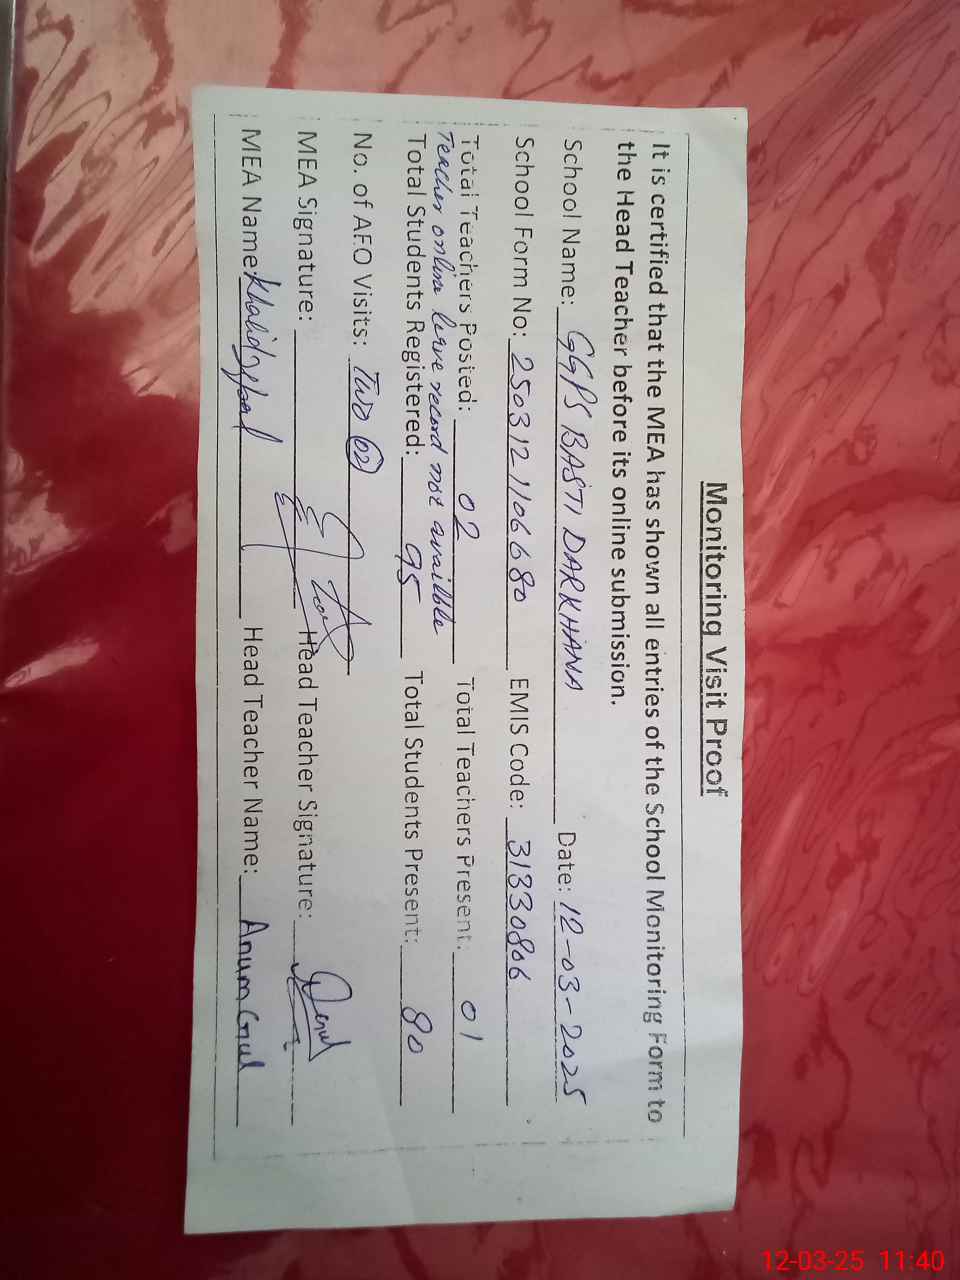 Monitoring Visit Proof
It is certified that the MEA has shown all entries of the School Monitoring Form to
the Head Teacher before its online submission.
School Name: GGPS BASTI DARKHANA Date: 12-03-2025
School Form No: 2503121106680 EMIS Code: 31330806
Total Teachers Posted: 02 Total Teachers Present: 01
Teacher online leave record not availble
Total Students Registered: 95 Total Students Present: 80
No. of AEO Visits: Two (02)
MEA Signature: Head Teacher Signature:
MEA Name: Khalid Head Teacher Name: Anum Gul
12-03-25 11:40